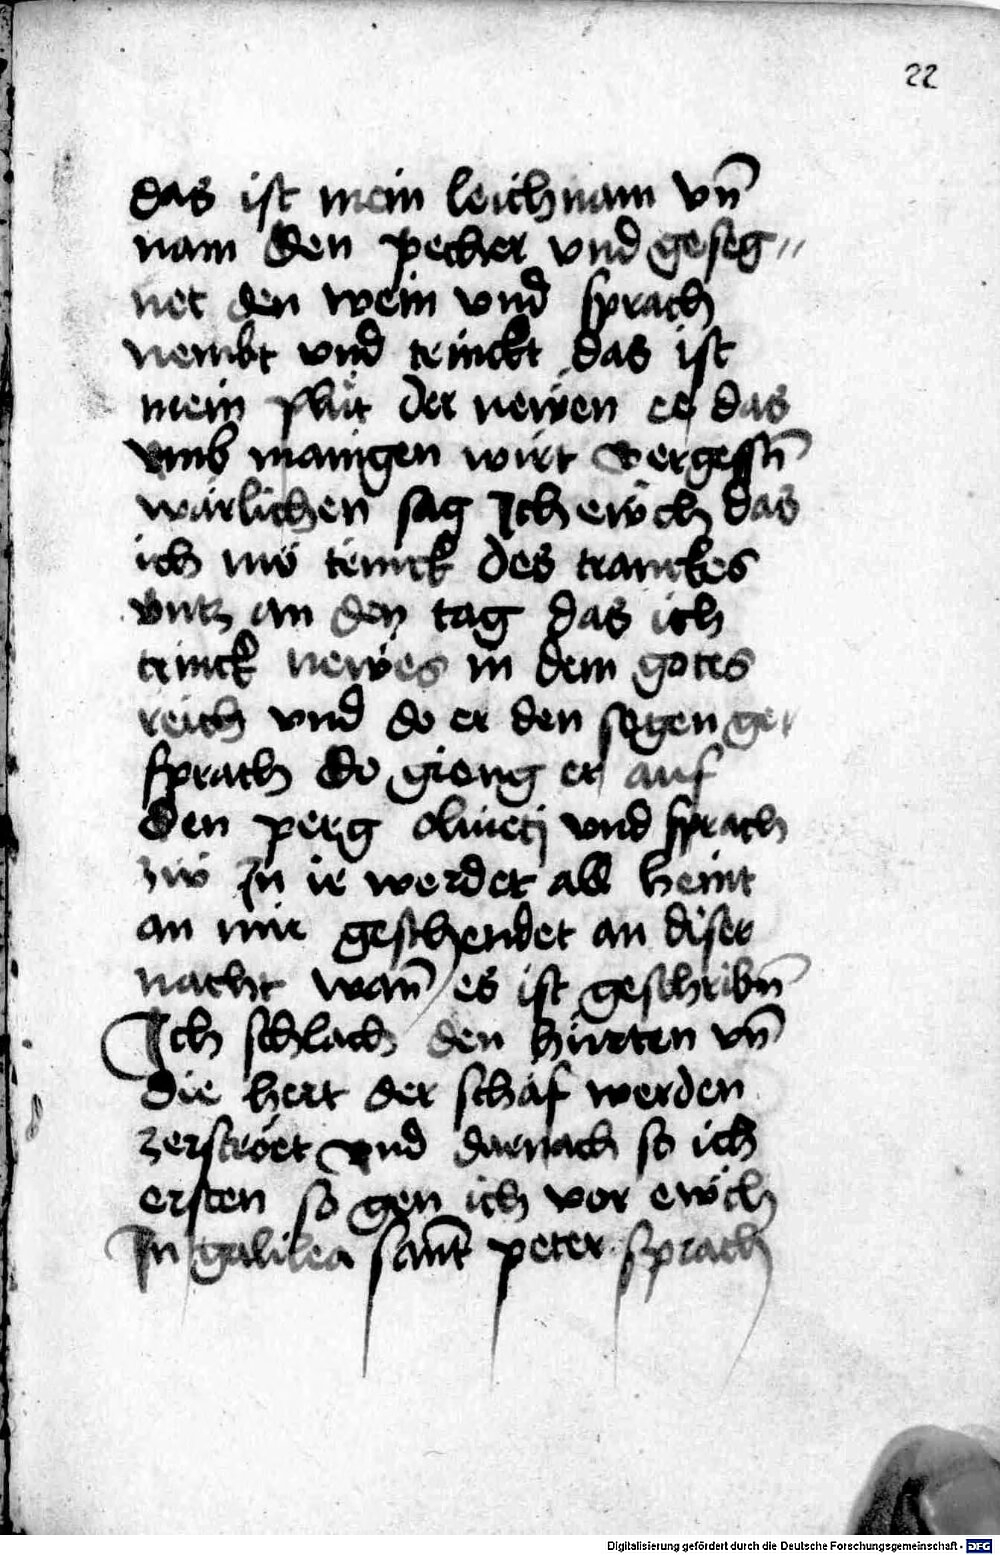 22
das ist mein leichnam vn̄
nam den pecher vnd geseg//
net den wein vnd sprach
nembt vnd trinckt das ist
mein plüt der newen ee das
vmb manigen wirt vergessn̄
wärlichen sag Ich ewch das
ich nw trinck des tranckes
vntz an den tag das ich
trinck newes in dem gotes
reich vnd do er den segen ge
sprach do gieng er auf
den perg oliueti vnd sprach
zw In ir werdet all heint
an mir geschendet an diser
nacht wan̄ es ist geschribn̄
Ich schlach den hirten vn̄
die hert der schäf werden
zerströet vnd darnach so ich
ersten so gen ich vor ewch
In galilea sant̄ peter sprach
Digitalisierung gefördert durch die Deutsche Forschungsgemeinschaft - DFG